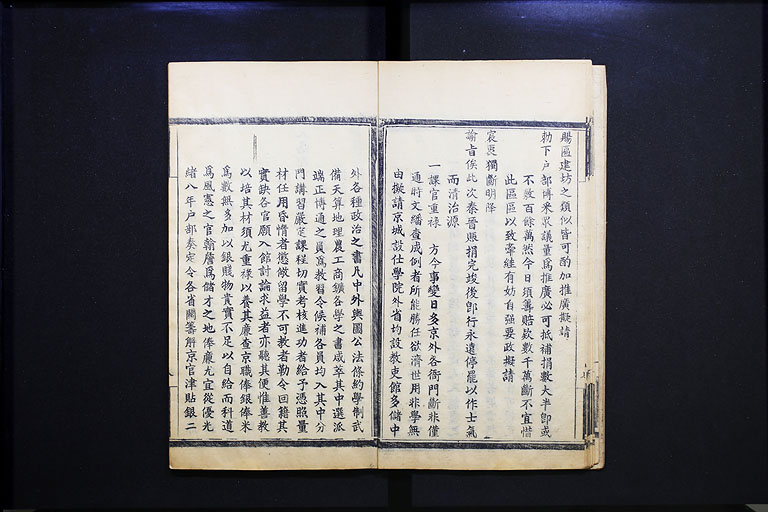 賜區建坊之類似皆可酌加推廣擬請
勅下戶部博釆眾議量爲推廣必可抵補捐數大半卽或
不敷百餘萬然今日須籌賠欵數千萬斷不宜惜
此區區以致牽絓有妨自强要政擬請
宸衷獨斷明降
諭旨俟此次秦晉賑捐完竣後卽行永遠停罷以作士氣
而清治源
一課官重祿 方今事變日多京外各衙門斷非僅
通時文繙查成例者所能勝任欲濟世用非學無
由擬請京城設仕學院外省均設敎吏館多儲中
外各種政治之書凡中外輿圖公法條約學制武
備天算地理農工商鑛各學之書咸萃其中選派
端正博通之員爲敎習令候補各員均入其中分
門講習嚴定課程切實考核進功者給予憑照量
材任用昏惰者懲儆留學不可敎者勒令回籍其
實缺各官願入館討論求益者亦聽其便惟善敎
以培其材須尤重祿以養其廉查京職俸銀俸米
爲數無多加以銀賤物貴實不足以自給而科道
爲風憲之官翰詹爲儲才之地俸廉尤宜從優光
緖八年戶部奏定令各省關籌解京官津貼銀二